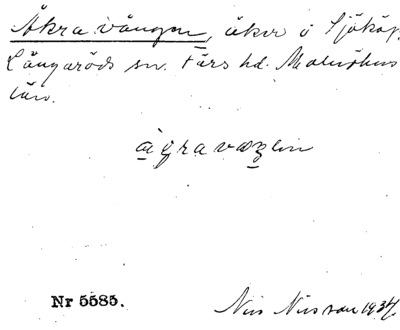 Åkra vången, åker i Sjököp,
Långaröds sn. Färs hd. Malmöhus
län.
Nr 5585.
Nils Nilsson 1934.